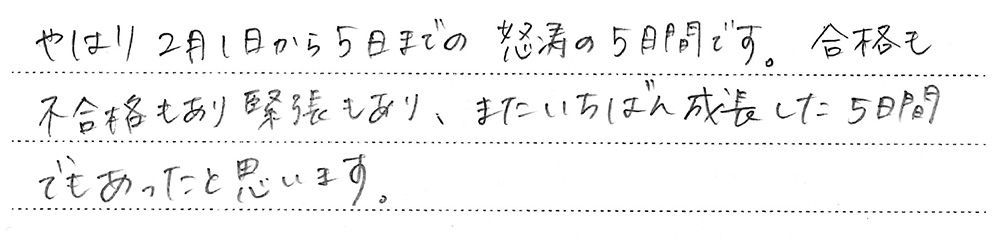 やはり2月1日から5日までの怒涛の5日間です。合格も
不合格もあり緊張もあり、またいちばん成長した5日間
でもあったと思います。